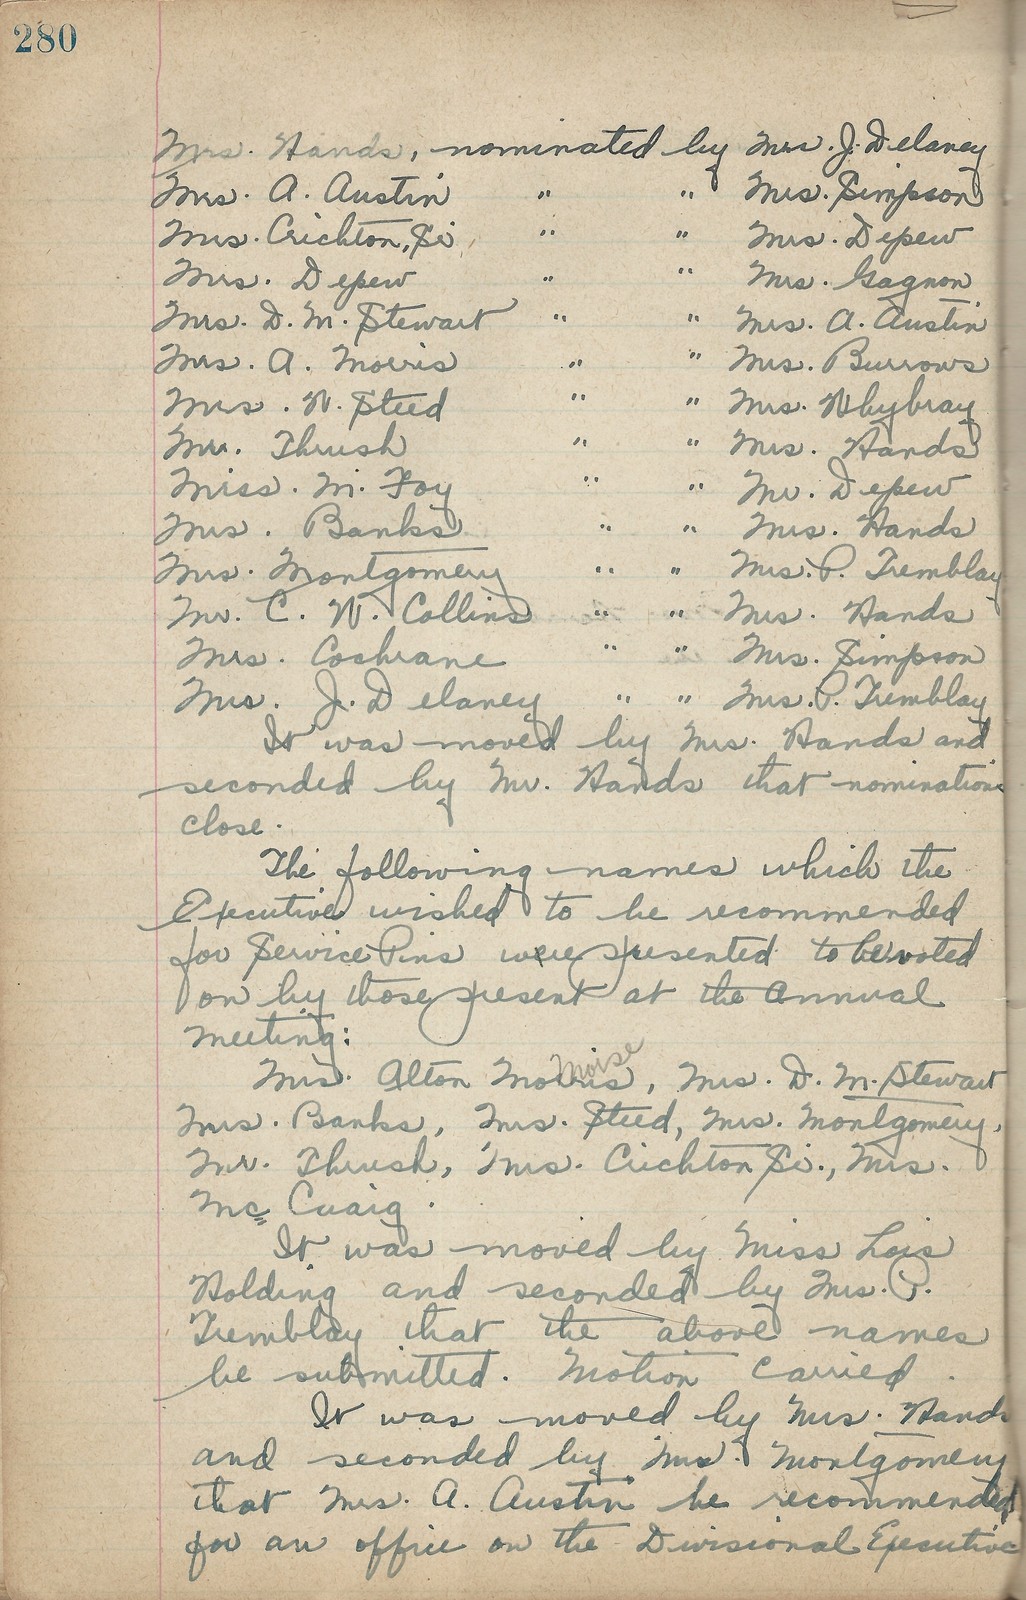 280
Mrs. Hands, nominated by Mrs. J. Delaney
Mrs. A. Austin " " Mrs. Simpson
Mrs. Crichton, Sr " " Mrs. Depew
Mrs. Depew " " Mrs. Gagnon
Mrs. D. M. Stewart " " Mrs. A. Austin
Mrs. A. Morris " " Mrs. Burrows
Mrs. W. Steed " " Mrs. Whybray
Mr. Thrush " " Mrs. Hands
Miss. M. Foy " " Mr. Depew
Mrs. Banks " " Mrs. Hands
Mrs. Montgomery " " Mrs. P. Tremblay
Mr. C. W. Collins " " Mrs. Hands
Mrs. Cochrane " " Mrs. Simpson
Mrs. J. Delaney " " Mrs. P. Tremblay
It was moved by Mrs. Hands and
seconded by Mr. Hands that nominations
close.
The following names which the
Executive wished to be recommended
for Service Pins were presented to be voted
on by those present at the annual
meeting:
Moise
Mrs. Alton Morris, Mrs. D. M. Stewart
Mrs. Banks, Mrs. Steed, Mrs. Montgomery,
Mr. Thrush, Mrs. Crichton Sr., Mrs.
McCuaig.
It was moved by Miss Lois
Holding and seconded by Mrs. P.
Tremblay that the above names
be submitted. Motion Carried.
It was moved by Mrs. Hands
and seconded by Mrs. Montgomery
that Mrs. A. Austin be recommended
for an office on the Divisional Executive